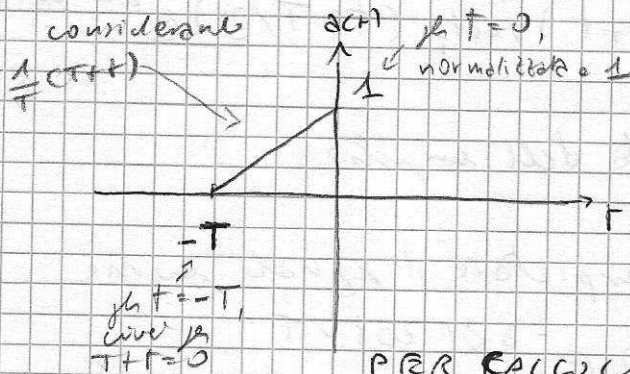 considerando
1/T (T+t)
a(t)
per t=0,
normalizzata a 1
1
t
-T
per t=-T,
cioè per
T+t=0
PER CALCOLA